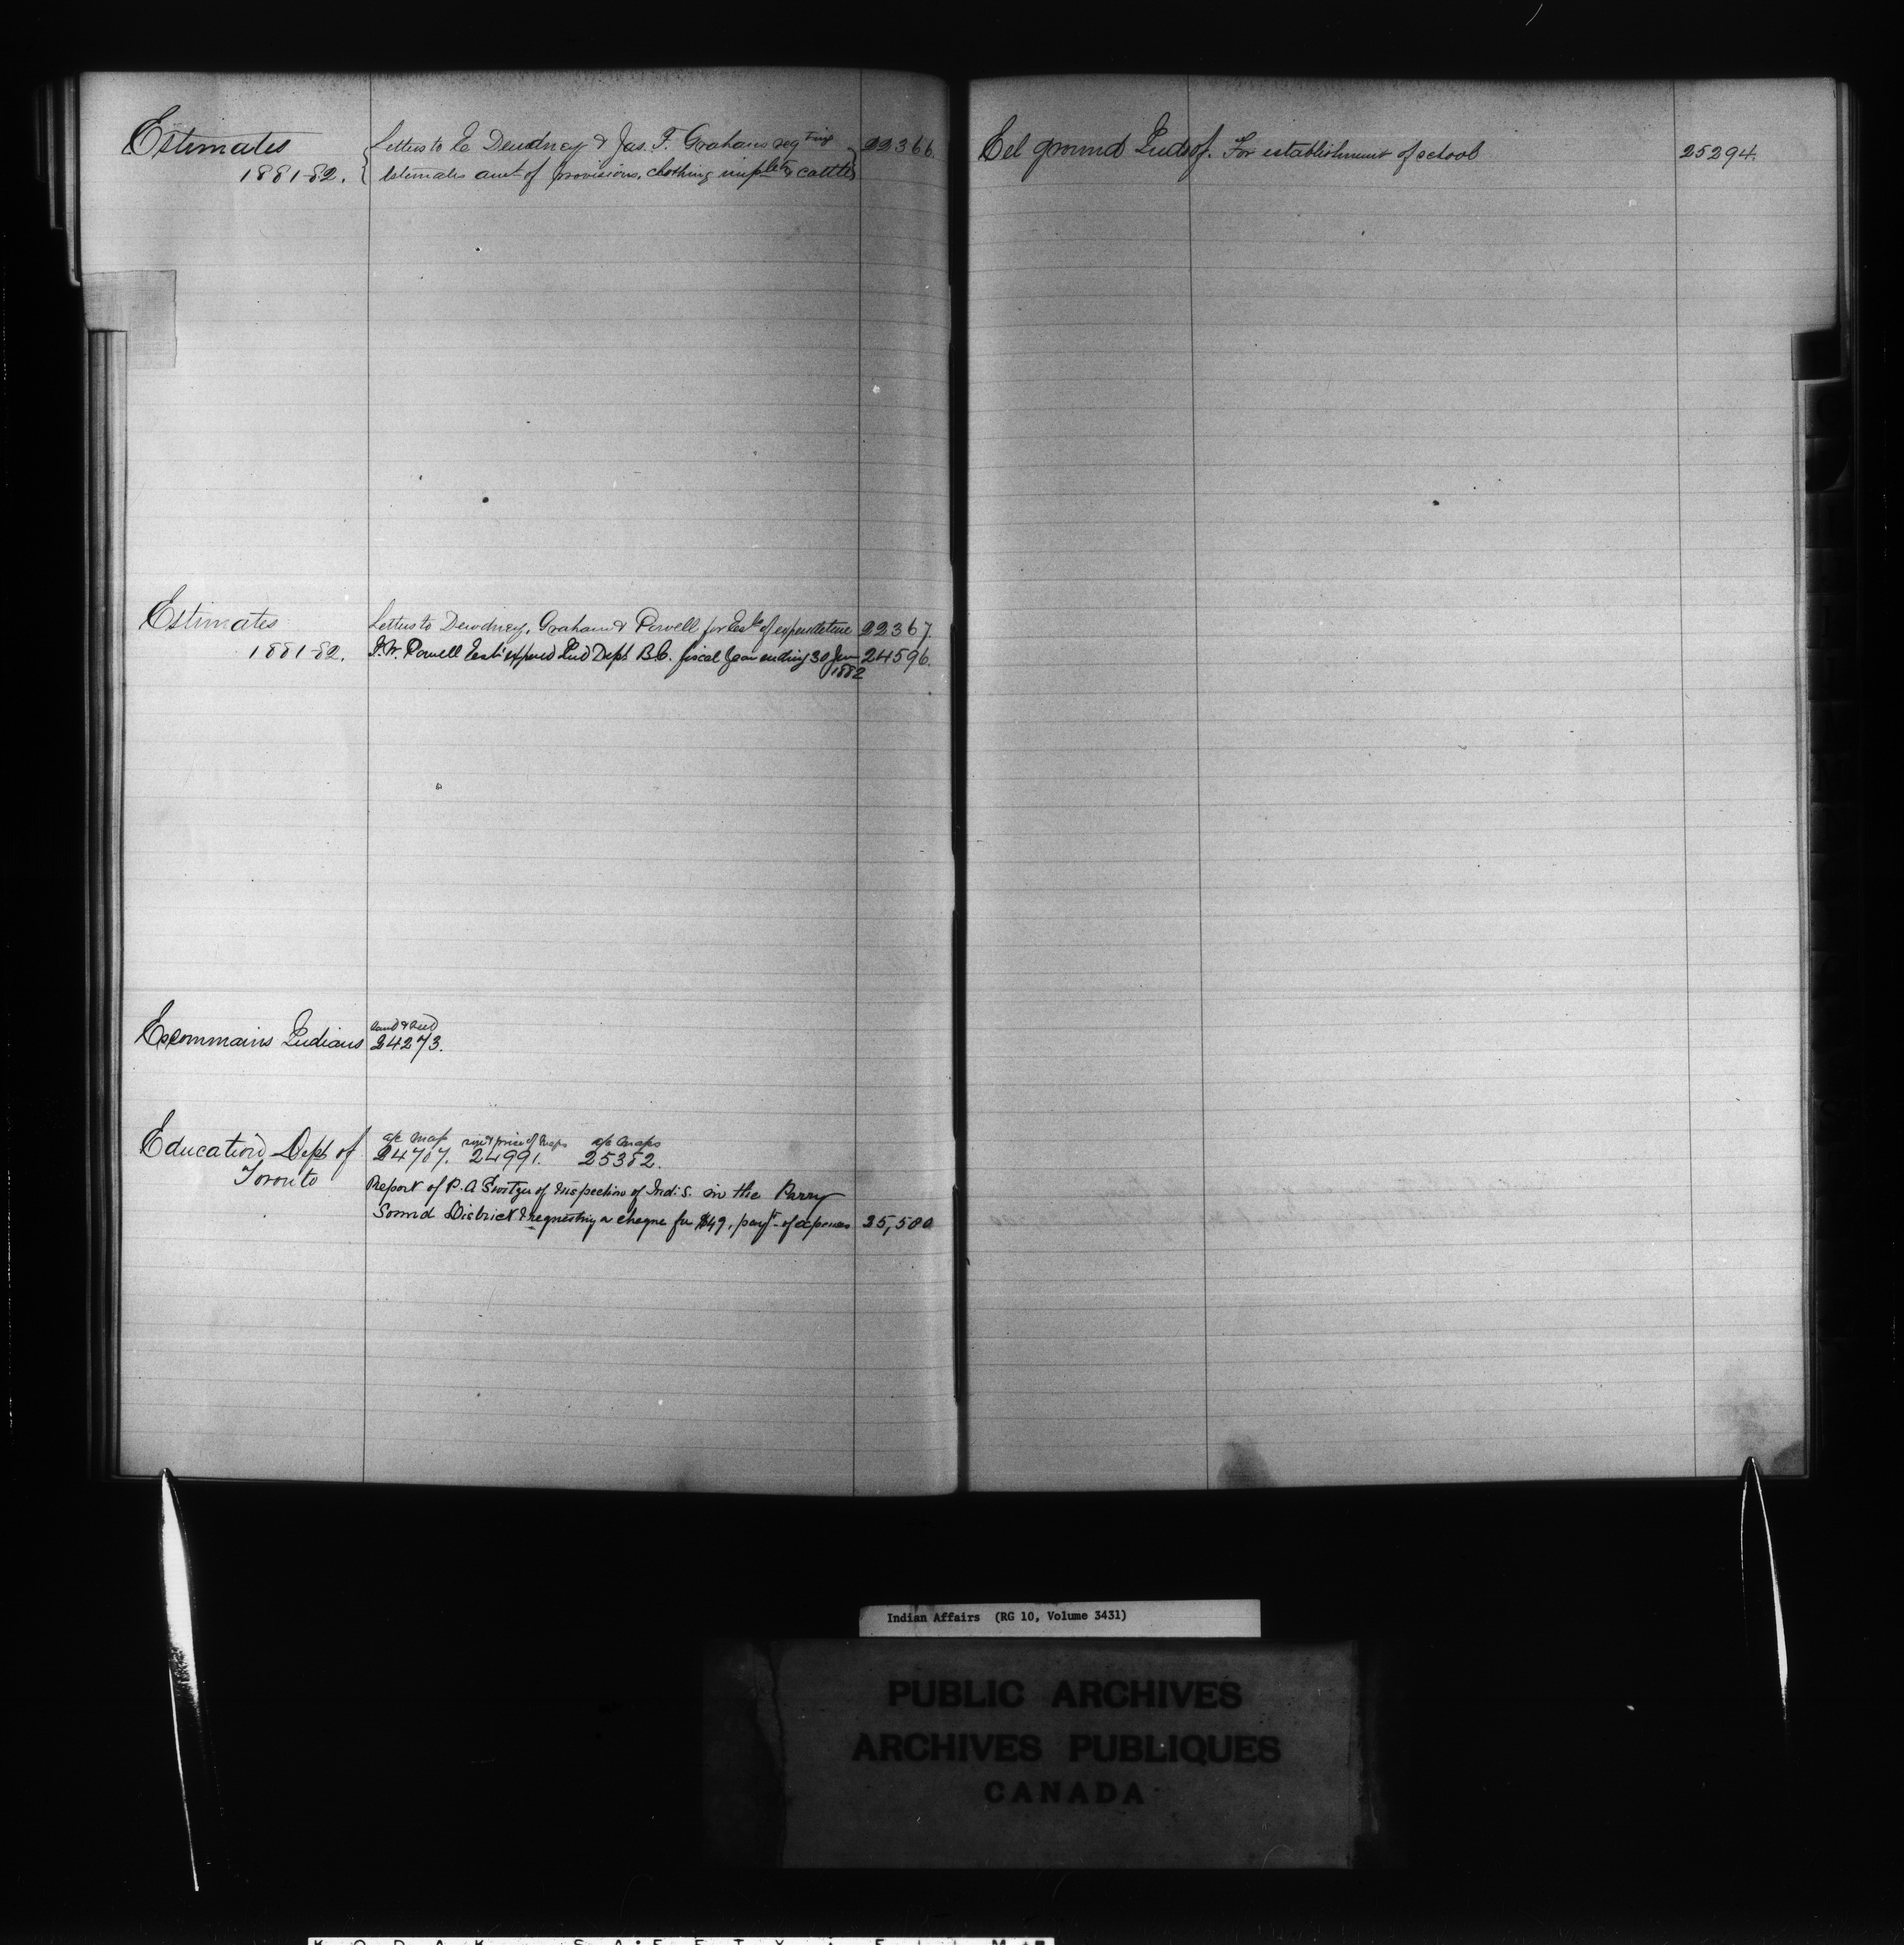 Estimates
1881-82.
Letters to E Dewdney & Jas. F. Graham reqting
Estimates amt of provisions, clothing implts & cattle
22366.
Estimates
1881-82.
Letters to Dewdney, Graham & Powell for Est of expenditure 22367.
I.W. Powell Est expend Ind Dept B.C. fiscal year ending 30 June 24596.
1882
Escommains Indians
Land & Seed
24273.
Education Dept of
Toronto
a/c Map size & price of Maps a/c Maps
24707. 24991. 25382.
Report of P. A of Inspection of Ind. S. in the Parry
Sound District & requesting a cheque for $49, payt of expenses 25,580
Eel ground Inds of. For establishment of school 25294.
Indian Affairs (RG 10, Volume 3431)
PUBLIC ARCHIVES
ARCHIVES PUBLIQUES
CANADA
KODAK SAFETY FILM